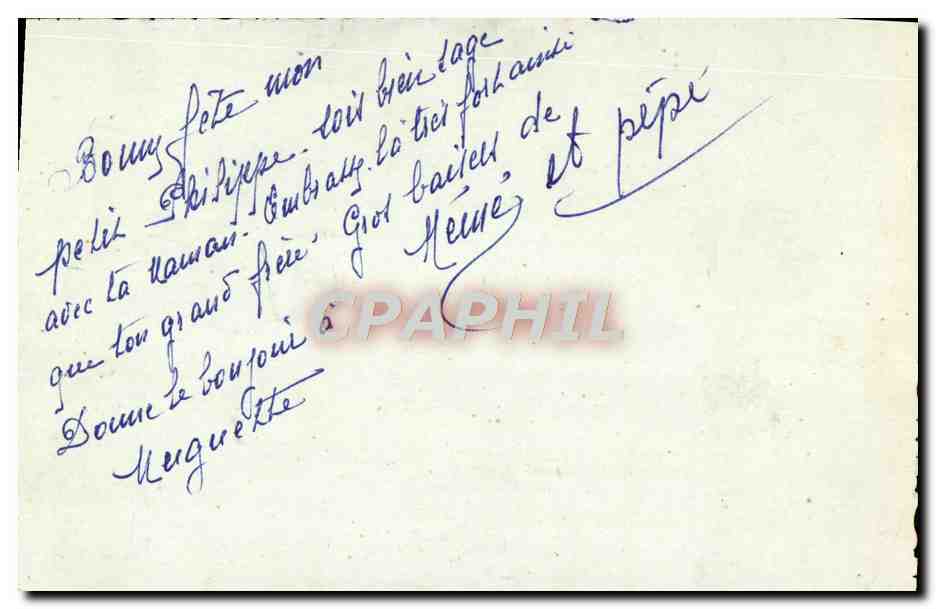 Bonne fête mon
petit Philippe. sois bien sage
avec ta Maman. Embrasse-la très fort ainsi
que ton grand frère. Gros baisers de
Mémé, et pépé
Donne le bonjour à
Huguette
CPAPHIL